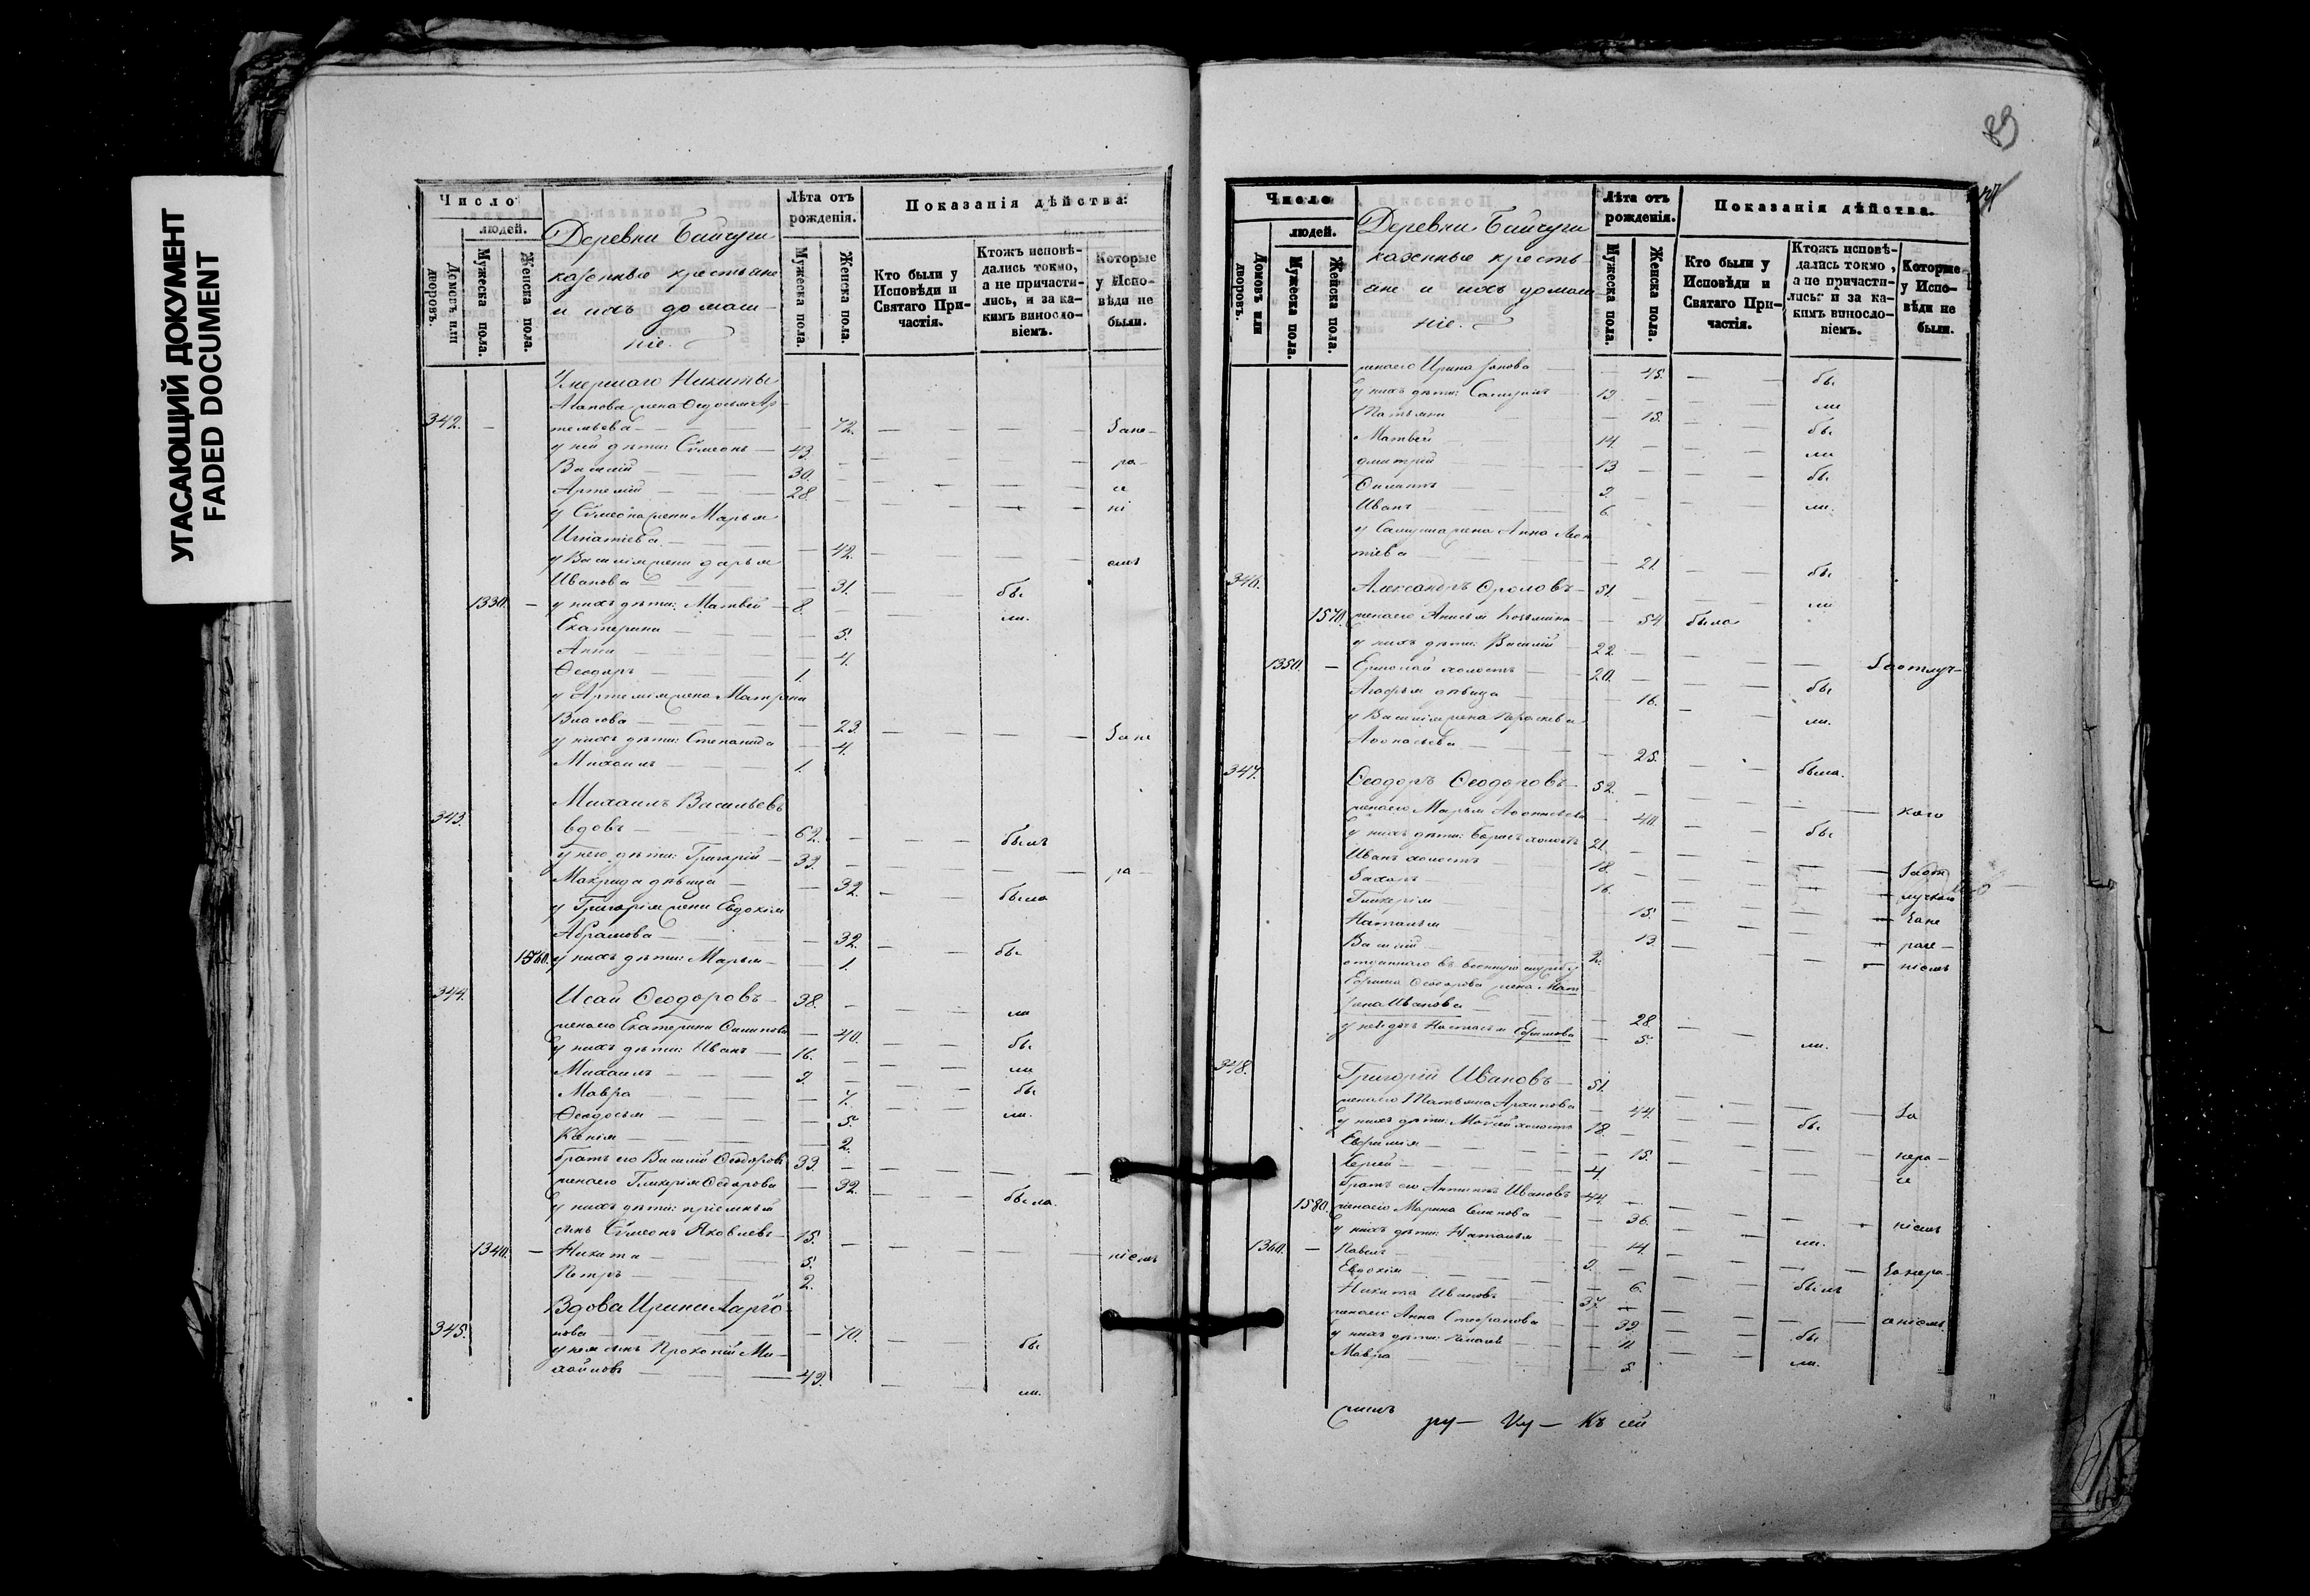 УГАСАЮЩИЙ ДОКУМЕНТ
FADED DOCUMENT
Число
людей.
Домовъ или дворовъ.
Мужеска пола.
Женска пола.
Деревни Байчуги
казенные крестьяне
и ихъ домаш-
ніе.
Лѣта отъ рожденія.
Мужеска пола.
Женска пола.
Показанія дѣйства:
Кто были у Исповѣди и Святаго Причастія.
Ктожъ исповѣдались токмо, а не причастились, и за какимъ винословіемъ.
Которые у Исповѣди не были.
Умершаго Никиты
Агапова жена Ѳедосья Ар-
342. — темьева — 72. Зане-
у ней дѣти: Сѵмеонъ — 43. ра-
Василій — 30. се
Артемій — 28. ні
у Сѵмеона жена Марья
Игнатіева — 42. емъ
у Василія жена Дарья
Иванова — 31. бы
1330. — у нихъ дѣти: Матвей — 8. ли.
Екатерина — 5.
Анна — 4.
Ѳеодоръ — 1.
у Артемія жена Матрона
Власова — 23. Зане
у нихъ дѣти: Степанида — 4.
Михаилъ — 1.
Михаилъ Васильевъ
343. вдовъ — 62. былъ
у него дѣти: Григорій — 33. ра-
Макрида дѣвица — 32. была
у Григорія жена Евдокія
Абрамова — 32. бы
1560. у нихъ дѣти: Марья — 1.
344. Исай Ѳеодоровъ — 38. ли
жена его Екатерина — 40. бы
у нихъ дѣти: Иванъ — 16. ли
Михаилъ — 9. бы
Мавра — 7. ли.
Ѳеодосья — 5.
2.
братъ его Василій Ѳеодоровъ 33.
жена его Гликерія — 32. была.
у нихъ дѣти: пріемный
сынъ Сѵмеонъ Яковлевъ — 15.
1340. — Никита — 5. ніемъ
Петръ — 2.
Вдова Ирина Ларіо-
345. нова — 70. бы
у нея сынъ Прокопій Ми-
хайловъ — 49. ли.
89
Число
людей.
Домовъ или дворовъ.
Мужеска пола.
Женска пола.
Деревни Байчуги
казенные кресть-
яне и ихъ домаш
ніе.
Лѣта отъ рожденія.
Мужеска пола.
Женска пола.
Показанія дѣйства.
Кто были у Исповѣди и Святаго Причастія.
Ктожъ исповѣдались токмо, а не причастились и за какимъ винословіемъ.
Которые у Исповѣди не были.
жена его Ирина — 45. бы
у нихъ дѣти: Самуилъ — 19. ли
Татьяна — 15. бы
Матвей — 14. ли
Дмитрій — 13 бы
Филиппъ — 9. ли.
Иванъ — 6.
у Самуила жена Анна Леон
тіева — 21. бы
346. Александръ Фроловъ — 51. ли
1570. жена его Анисья Козьмина — 54 была
у нихъ дѣти: Василій — 22.
1350. — Ермолай холостъ — 20. Заотлуч-
Агафья дѣвица — 16. бы
у Василія жена Параскева ли.
Аѳонасьева — 25. была.
347. Ѳеодоръ Ѳеодоровъ — 52.
жена его Марья Аѳонасьева — 40. кою
у нихъ дѣти: Борисъ холостъ 21. бы
Иванъ холостъ — 18. Заот
Захаръ — 16. лучкою
Гликерія — 15. Зане
Наталья — 13. расе-
Василій — 2. ніемъ
отданнаго въ военную службу
Ефима Ѳеодорова жена Мат
рона Иванова — 28.
у ней дочь Настасья Ефимова — 5. ли.
348. Григорій Ивановъ — 51.
жена его Татьяна Архипова — 44. За
у нихъ дѣти: холостъ 18. бы
Евфимія — 15. нера-
Сергей — 4. се
братъ его Антипъ Ивановъ 44.
1580. жена его Марина Семенова — 36. ніемъ
у нихъ дѣти: Наталья — 14. ли.
1360. — Павелъ — 9. Занера-
Евдокія — 6. былъ
Никита Ивановъ — 37.
жена его Анна Стефанова — 39. сніемъ.
у нихъ дѣти: — 11. бы
Мавра — 5. ли.
Къ сей